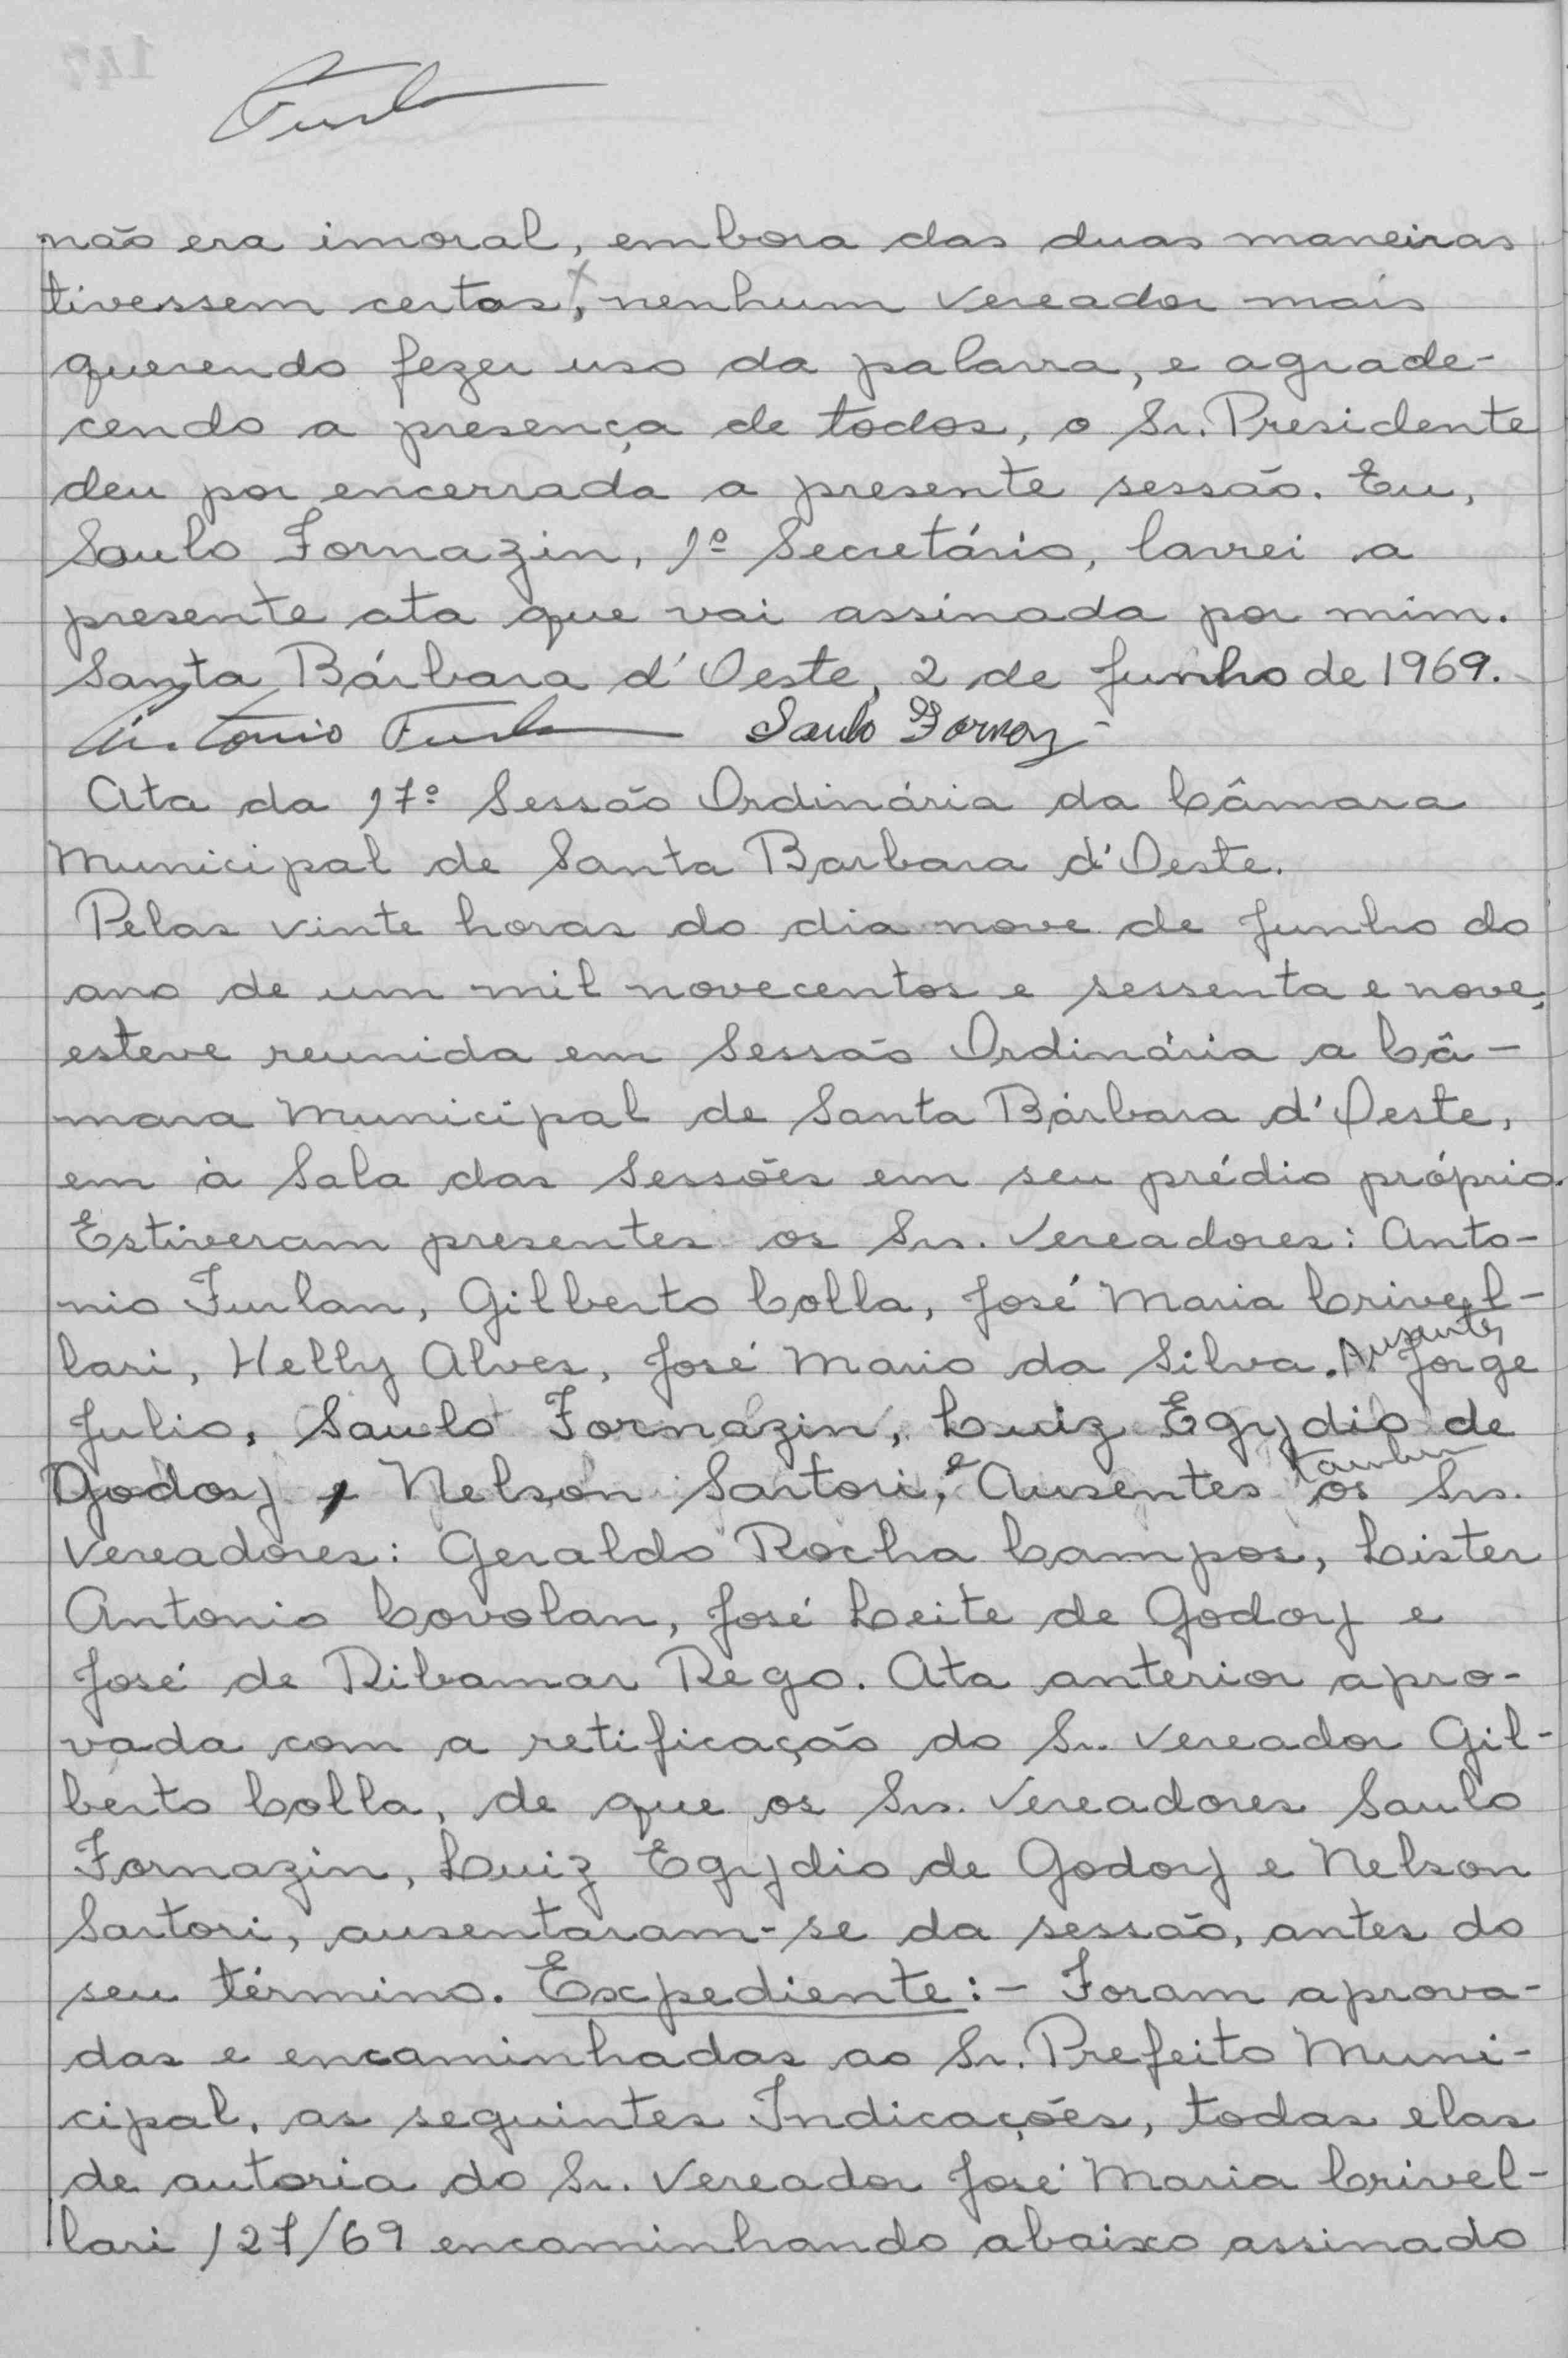 não era imoral, embora das duas maneiras
tivessem certas, nenhum vereador mais
querendo fezer uso da palavra, e agrade-
cendo a presença de todos, o Sr. Presidente
deu por encerrada a presente sessão. Eu,
Saulo Fornazin, 1º Secretário, lavrei a
presente ata que vai assinada por mim.
Santa Bárbara d'Oeste, 2 de Junho de 1969.
Antonio Saulo
Ata da 17º Sessão Ordinária da Câmara
Municipal de Santa Barbara d'Oeste.
Pelas vinte horas do dia nove de Junho do
ano de um mil novecentos e sessenta e nove,
esteve reunida em Sessão Ordinária a Câ-
mara Municipal de Santa Bárbara d'Oeste,
em à Sala das Sessões em seu prédio próprio.
Estiveram presentes os Srs. Vereadores: Anto-
nio Furlan, Gilberto Colla, José Maria Crivel-
lari, Helly Alves, José Mario da Silva. Ausentes Jorge
Julio, Saulo Fornazin, Luiz Egydio de
Godoy, Nelson Sartori, e Ausentes também os Srs.
Vereadores: Geraldo Rocha Campos, Lister
Antonio Covolan, José Leite de Godoy e
José de Ribamar Rego. Ata anterior apro-
vada com a retificação do Sr. Vereador Gil-
berto Colla, de que os Srs. Vereadores Saulo
Fornazin, Luiz Egydio de Godoy e Nelson
Sartori, ausentaram-se da sessão, antes do
seu término. Expediente:- Foram aprova-
das e encaminhadas ao Sr. Prefeito Muni-
cipal, as seguintes Indicações, todas elas
de autoria do Sr. Vereador José Maria Crivel-
lari 127/69 encaminhando abaixo assinado